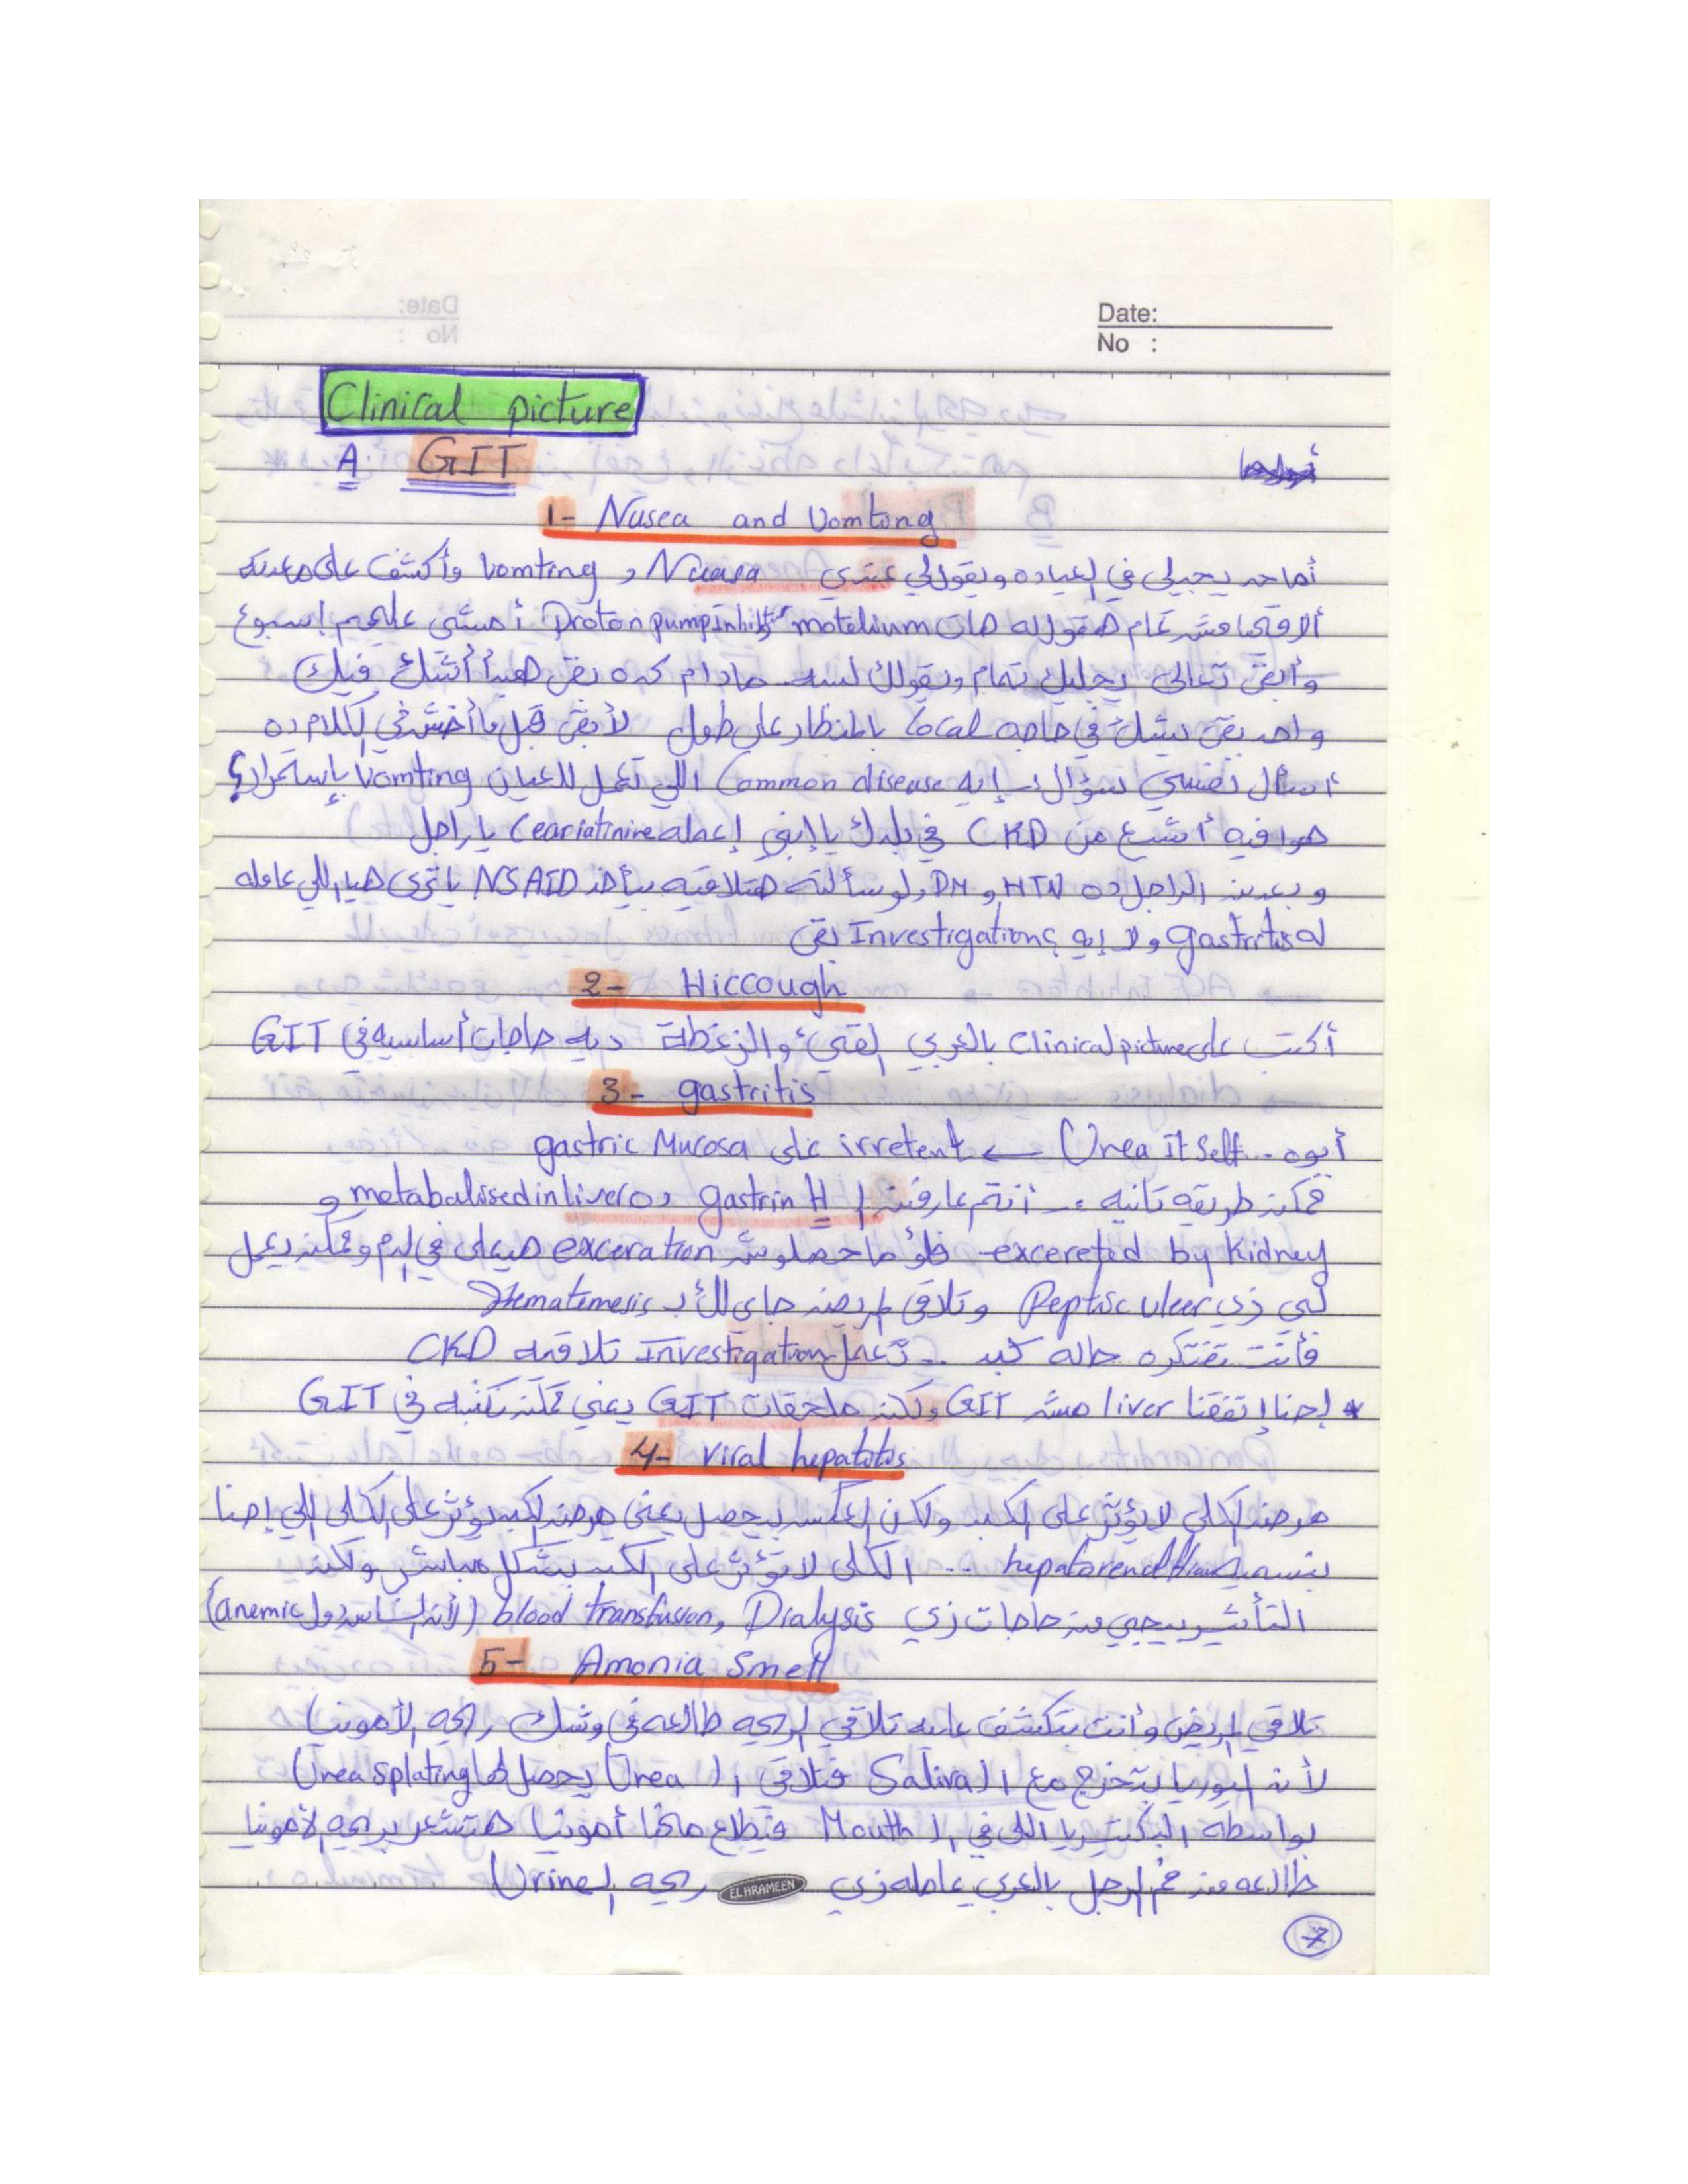 Date:
No :
Clinical picture
A. GIT
1- Nusea and Vomting
أما حد يجيلي في العياده ويقولي عندي Nuasa و Vomting وأكشف على معدته
ألاقيها مش تمام هقوله هات motelium و Proton pump inhibitor أمشي عليهم إسبوع
وأبقى تعالى يجيلك تمام ويقولك لسه مادام كده بقى هبدأ أشك فيك
واحد بقى بيشك في حاجه local بالمنظار على طول لأ بقى قبل ما أخش في الكلام ده
أسأل نفسي سؤال :- إيه Common disease اللي تعمل للعيان Vomting بإستمرار؟
هوا فيه أشيع من CKD في بلدك يا إبني إعمله Ceariatinine يا راجل
وبعدين الراجل ده HTN و DM ولو سألته هتلاقيه بيأخد NSAID يا ترى هيا اللي عامله
له gastritis ولا إيه ؟ Investigation بقى
2- Hiccough
أكتب على Clinical picture بالعربي القئ والزغطة ديه حاجات أساسيه في GIT
3- gastritis
أيوه .. Urea it Self ← irretent على gastric Mucosa
ممكن طريقه تانيه :- أنتم عارفين ال gastrin H ده metabalised in liver و
excereted by Kidney فلو ما حصلوش exceration هيعلى في الدم وممكن يعمل
لي زي Peptic ulcer وتلاقي المريض جاي لك ب Hematemesis
فأنت تفتكره حاله كبد .. تعمل Investigation تلاقيه CKD
* إحنا إتفقنا liver مش GIT ولكن ملحقات GIT يعني ممكن نكتبه في GIT
4- Viral hepatitis
مرض الكلى لا يؤثر على الكبد ولكن العكس يحصل يعني مرض الكبد يؤثر على الكلى اللي إحنا
بنسميه hepatorenal .. الكلى لا تؤثر على الكبد بشكل مباشر ولكن
التأثير بييجي من حاجات زي Dialysis ,blood transfusion (لأن الناس دول anemic)
5- Amonia Smell
تلاقي المريض وأنت بتكشف عليه تلاقي الريحه طالعه في وشك ريحه الأمونيا
لأن اليوريا بتخرج مع ال Saliva فتلاقي ال Urea يحصل لها Urea splating
بواسطه البكتيريا اللي في ال Mouth فتطلع منها أمونيا هتشعر بريحه الأمونيا
طالعه من فم الرجل بالعربي عامله زي ريحه ال Urine
EL HRAMEEN
7